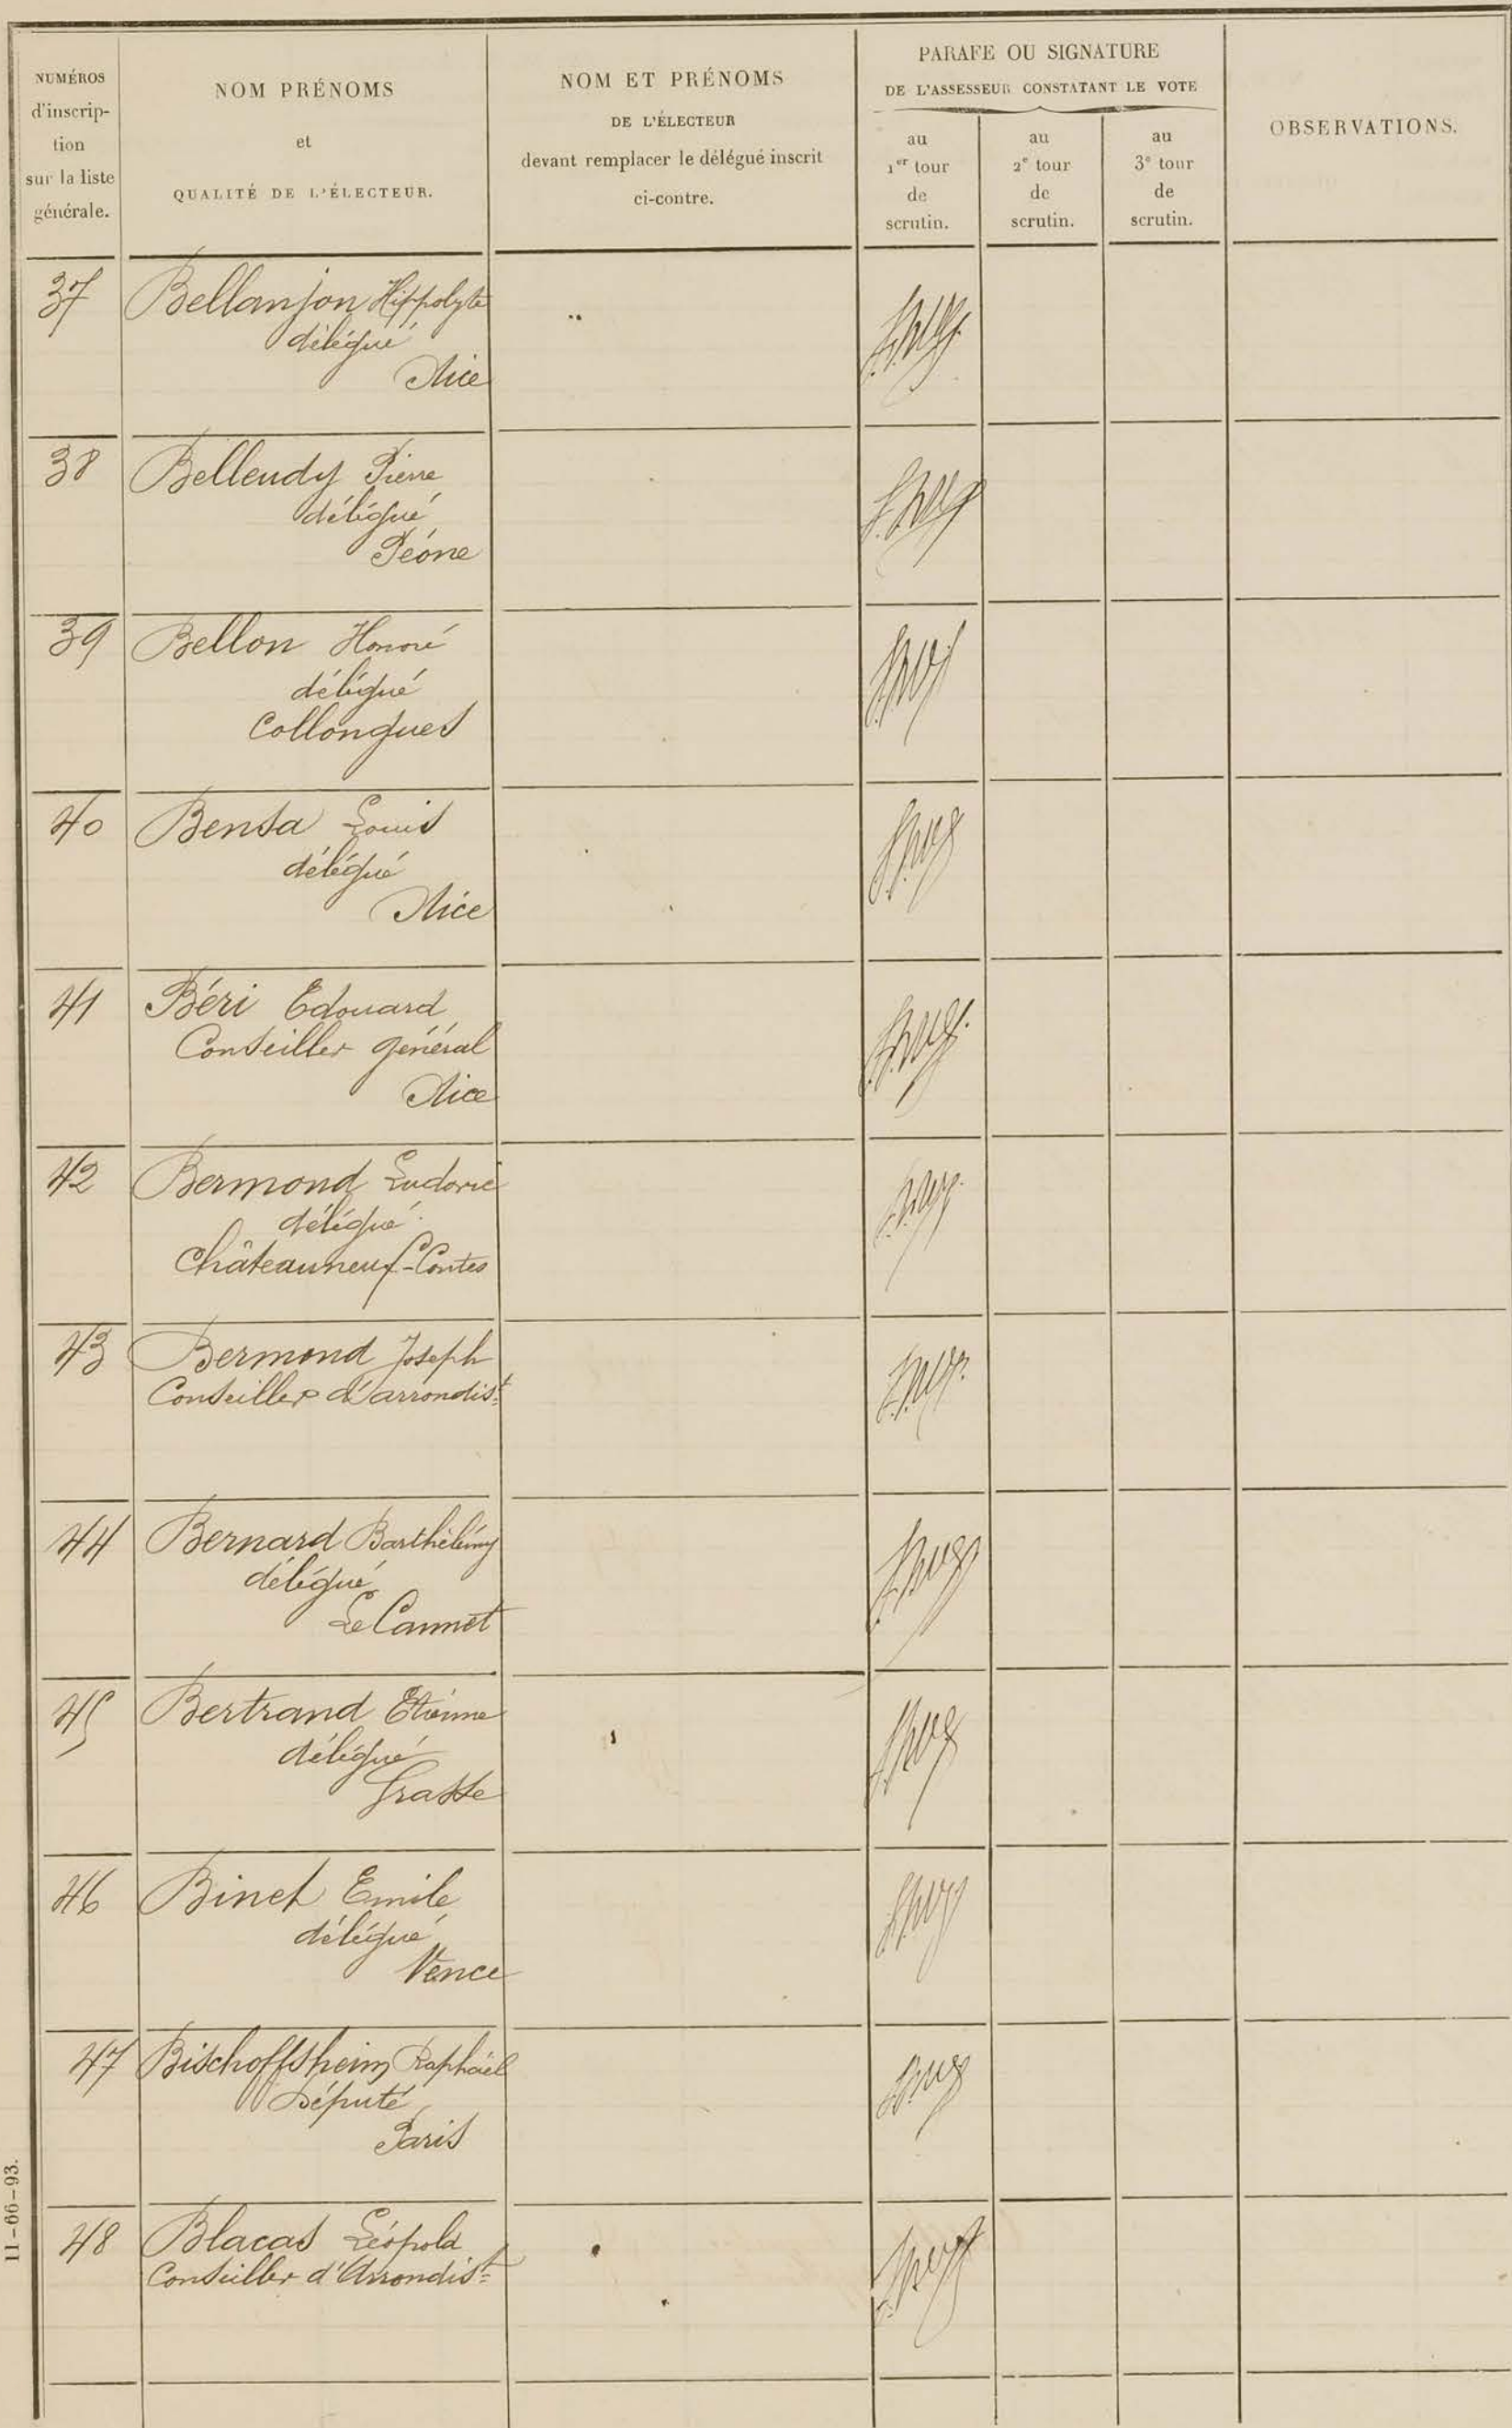 NUMÉROS
d'inscrip-
tion
sur la liste
générale.
NOM PRÉNOMS
et
QUALITÉ DE L'ÉLECTEUR.
NOM ET PRÉNOMS
DE L'ÉLECTEUR
devant remplacer le délégué inscrit
ci-contre.
PARAFE OU SIGNATURE
DE L'ASSESSEUR CONSTATANT LE VOTE
au
1er tour
de
scrutin.
au
2e tour
de
scrutin.
au
3e tour
de
scrutin.
OBSERVATIONS.
37 Bellanjon Hippolyte
délégué
Nice
38 Belleudy Pierre
délégué
Péone
39 Bellon Honoré
délégué
Collongues
40 Bensa Louis
délégué
Nice
41 Béri Edouard
Conseiller général
Nice
42 Bermond Ludovic
délégué
Châteauneuf-Contes
43 Bermond Joseph
Conseiller d'arrondist
44 Bernard Barthélémy
délégué
Le Cannet
45 Bertrand Etienne
délégué
Grasse
46 Binet Emile
délégué
Vence
47 Bischoffsheim Raphaël
Député
Paris
48 Blacas Léopold
Conseiller d'Arrondist
11-66-93.